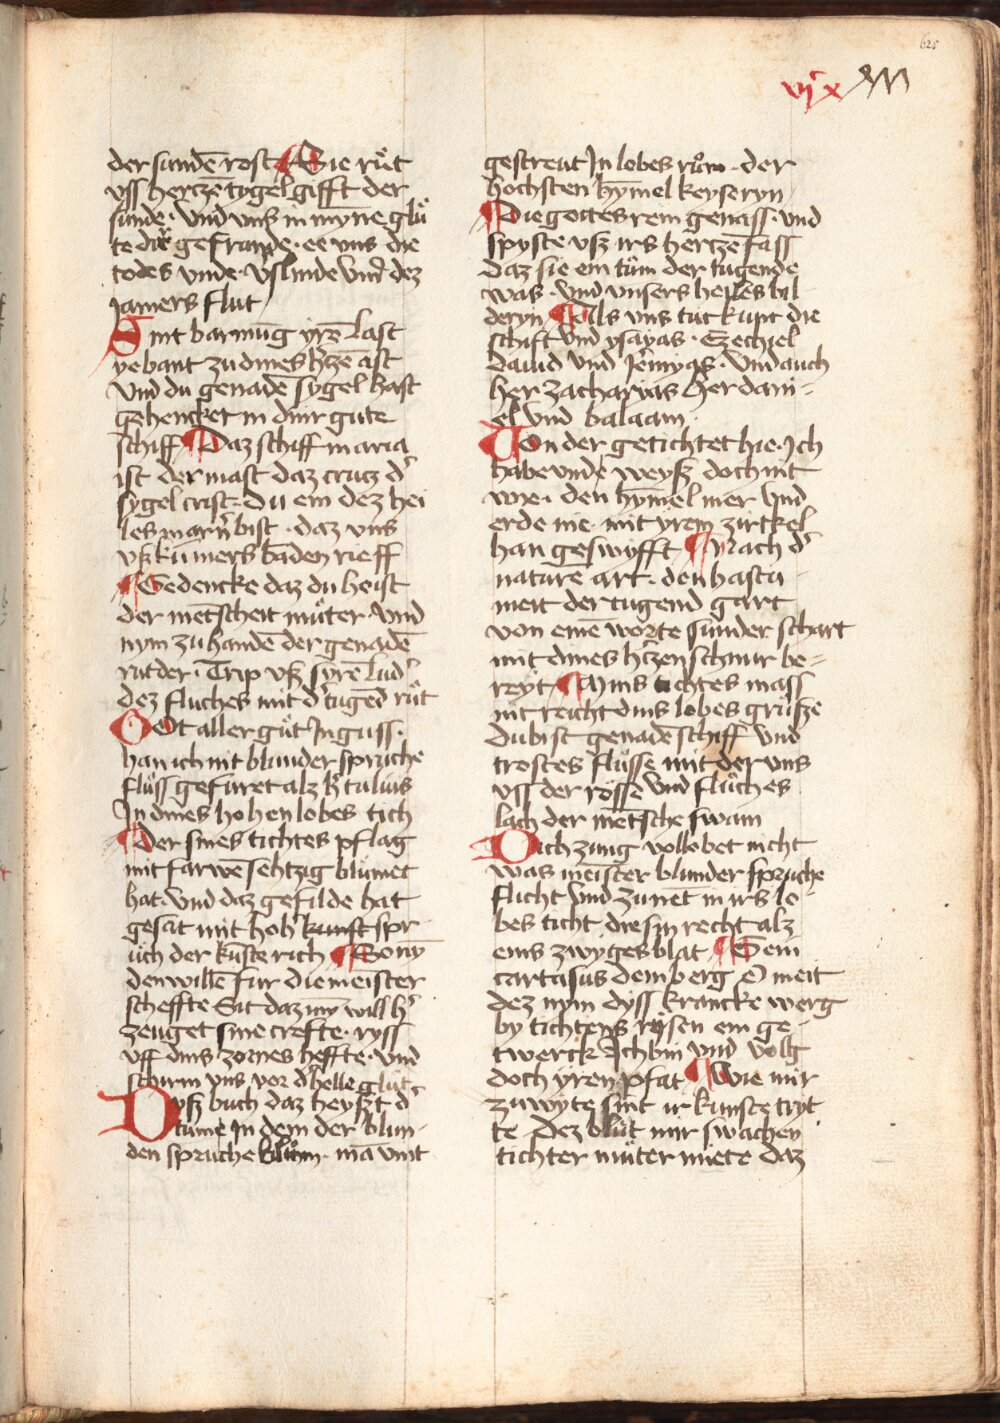 625
vjͨ x
der sundē rost ¶ Die růt
vss hertzē tygel gifft der
sunde · Vnd vnß in myne glů
te die gefrunde · ee vns die
todes vnde · Vslinde Vnd dez
Jamers flut
Sint barmūg yrē last
ye bant zu dines h'tzē ast
Vnd du genade sygel hast
gehencket in dinr gute
schiff ¶ Daz schiff maria
ist der mast daz crutz d'
sygel crist · Du ein dez hei
les marn' bist · daz vns
vß kūmers baden rieff
¶ Gedencke daz du heist
der mētscheit můter · Vnd
nym zu handē der genadē
rutder · Trip vß syrē lud'
dez fluches mit d' tugēd růt
Got aller gůt Jn guss ·
han ich nit blunder spruche
flůss gefuret alz h' tulius
Jn dines hohen lobes tich
¶ Der sines tichtes pflag
mit farwē sehtzig blůmet
hat · Vnd daz gefilde hat
gesat mit hoh' kunst spr
uch der kūste rich ¶ So nȳ
den willē fur die meister
scheffte Sit daz mȳ will h'
zeuget sine crefte · ryss
vff dins zornes heffte · Vnd
schirm vns vor d' helle glut
Dyß buch daz heyßt d'
tume Jn dem der blun-
den spruche blům · mā vint
gestreut Jn lobes rům · der
hochsten hymel keyseryn
¶ Die gottes rein genass · vnd
spyste vß irs hertzē fass
daz sie ein tům der tugende
was · Vnd vnsers heiles bil
deryn ¶ Alls vns tut kunt die
schift Vnd ysayas · Ezechiel
Dauid Vnd Jeremyas · Vnd auch
her zacharias her dani-
el vnd balaam ·
Von der getichtet hie · Jch
habe vnde weyß doch nit
wie · den hymel mer Vnd
erde nie · mit yrem zirckel
han geswyfft ¶ Nach d'
nature art · den hastu
meit der tugend gart
von eine worte sunder schart
mit dines h'tzen schnur be-
reyt ¶ Mins tichtes mass
nit reicht dins lobes grüsze
du bist genade schiff Vnd
trostes flůsse mit der vns
vss der rosse vnd flůches
lach der mētsche swam
Dich zung vollobet nicht
was meister blunder spruche
flicht Vnd zu net in irs lo-
bes ticht die sin recht alz
eins zwyges blat ¶ Gein
cartasus dem berg O meit
dez nym dyss krancke werg
by tichtens rosen ein ge-
twerck Jch bin vnd volg
doch yren pfat ¶ Wie mir
zu wyte sint ir kunste tryt
te Dez blůt mir swachen
tichter můter miete daz